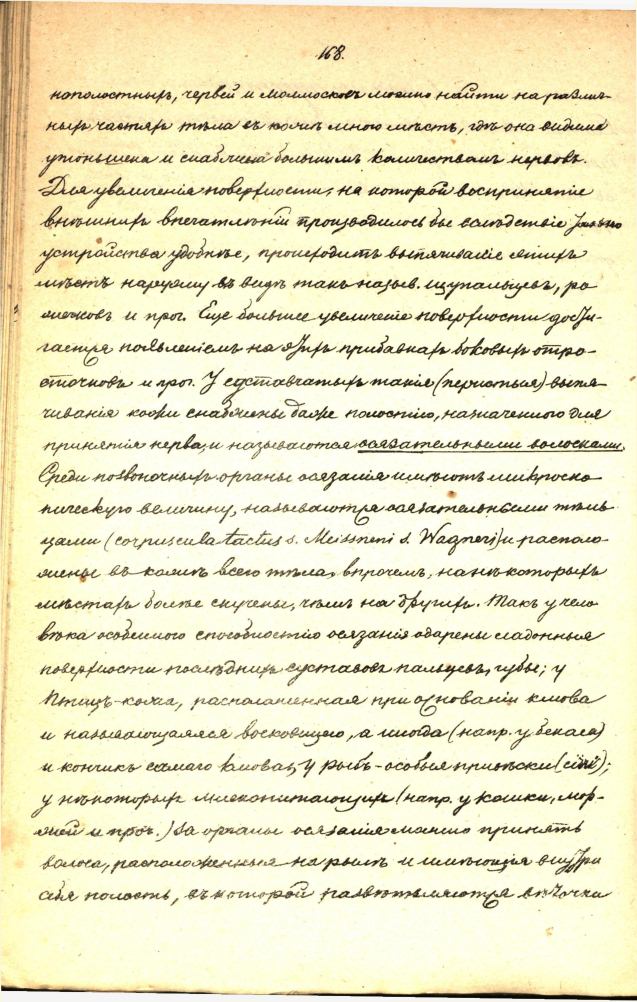 168.
нополостныхъ, червей и моллюсковъ можно найти на различ-
ныхъ частяхъ тѣла въ кожѣ много мѣстъ, гдѣ она видимо
утоньшена и снабжена большимъ количествомъ нервовъ.
Для увеличенія поверхности, на которой воспринятіе
внѣшнихъ впечатлѣній производилось бы вслѣдствіе
устройства удобнѣе, происходитъ выпячиваніе этихъ
мѣстъ наружу въ видѣ такъ назыв. щупальцевъ, ро
жковъ и проч. Еще большее увеличеніе поверхности дости-
гается появленіемъ на этихъ прибавкахъ боковыхъ отро-
сточковъ и проч. У суставчатыхъ такія (перистыя) выпя
чиванія кожи снабжены даже полостію, назначенною для
принятія нерва, и называются осязательными волосками.
Среди позвоночныхъ органы осязанія имѣютъ микроско
пическую величину, называются осязательными тѣль
цами (corpuscula tactus s. Meissneri s. Wagneri) и располо-
жены въ кожѣ всего тѣла, впрочемъ, на нѣкоторыхъ
мѣстахъ болѣе скучены, чѣмъ на другихъ. Такъ у чело
вѣка особенною способностію осязанія одарены ладонныя
поверхности послѣднихъ суставовъ пальцевъ, губы; у
птицъ - кожа, расположенная при основаніи клюва
и называющаяся восковицею, а иногда (напр. у бекаса)
и кончикъ самаго клюва; у рыбъ - особыя привѣски (cirri);
у нѣкоторыхъ млекопитающихъ (напр. у кошки, мор-
жей и проч.) за органы осязанія можно принять
волоса, расположенныя на рылѣ и имѣющія внутри
себя полость, въ которой развѣтвляются вѣточки